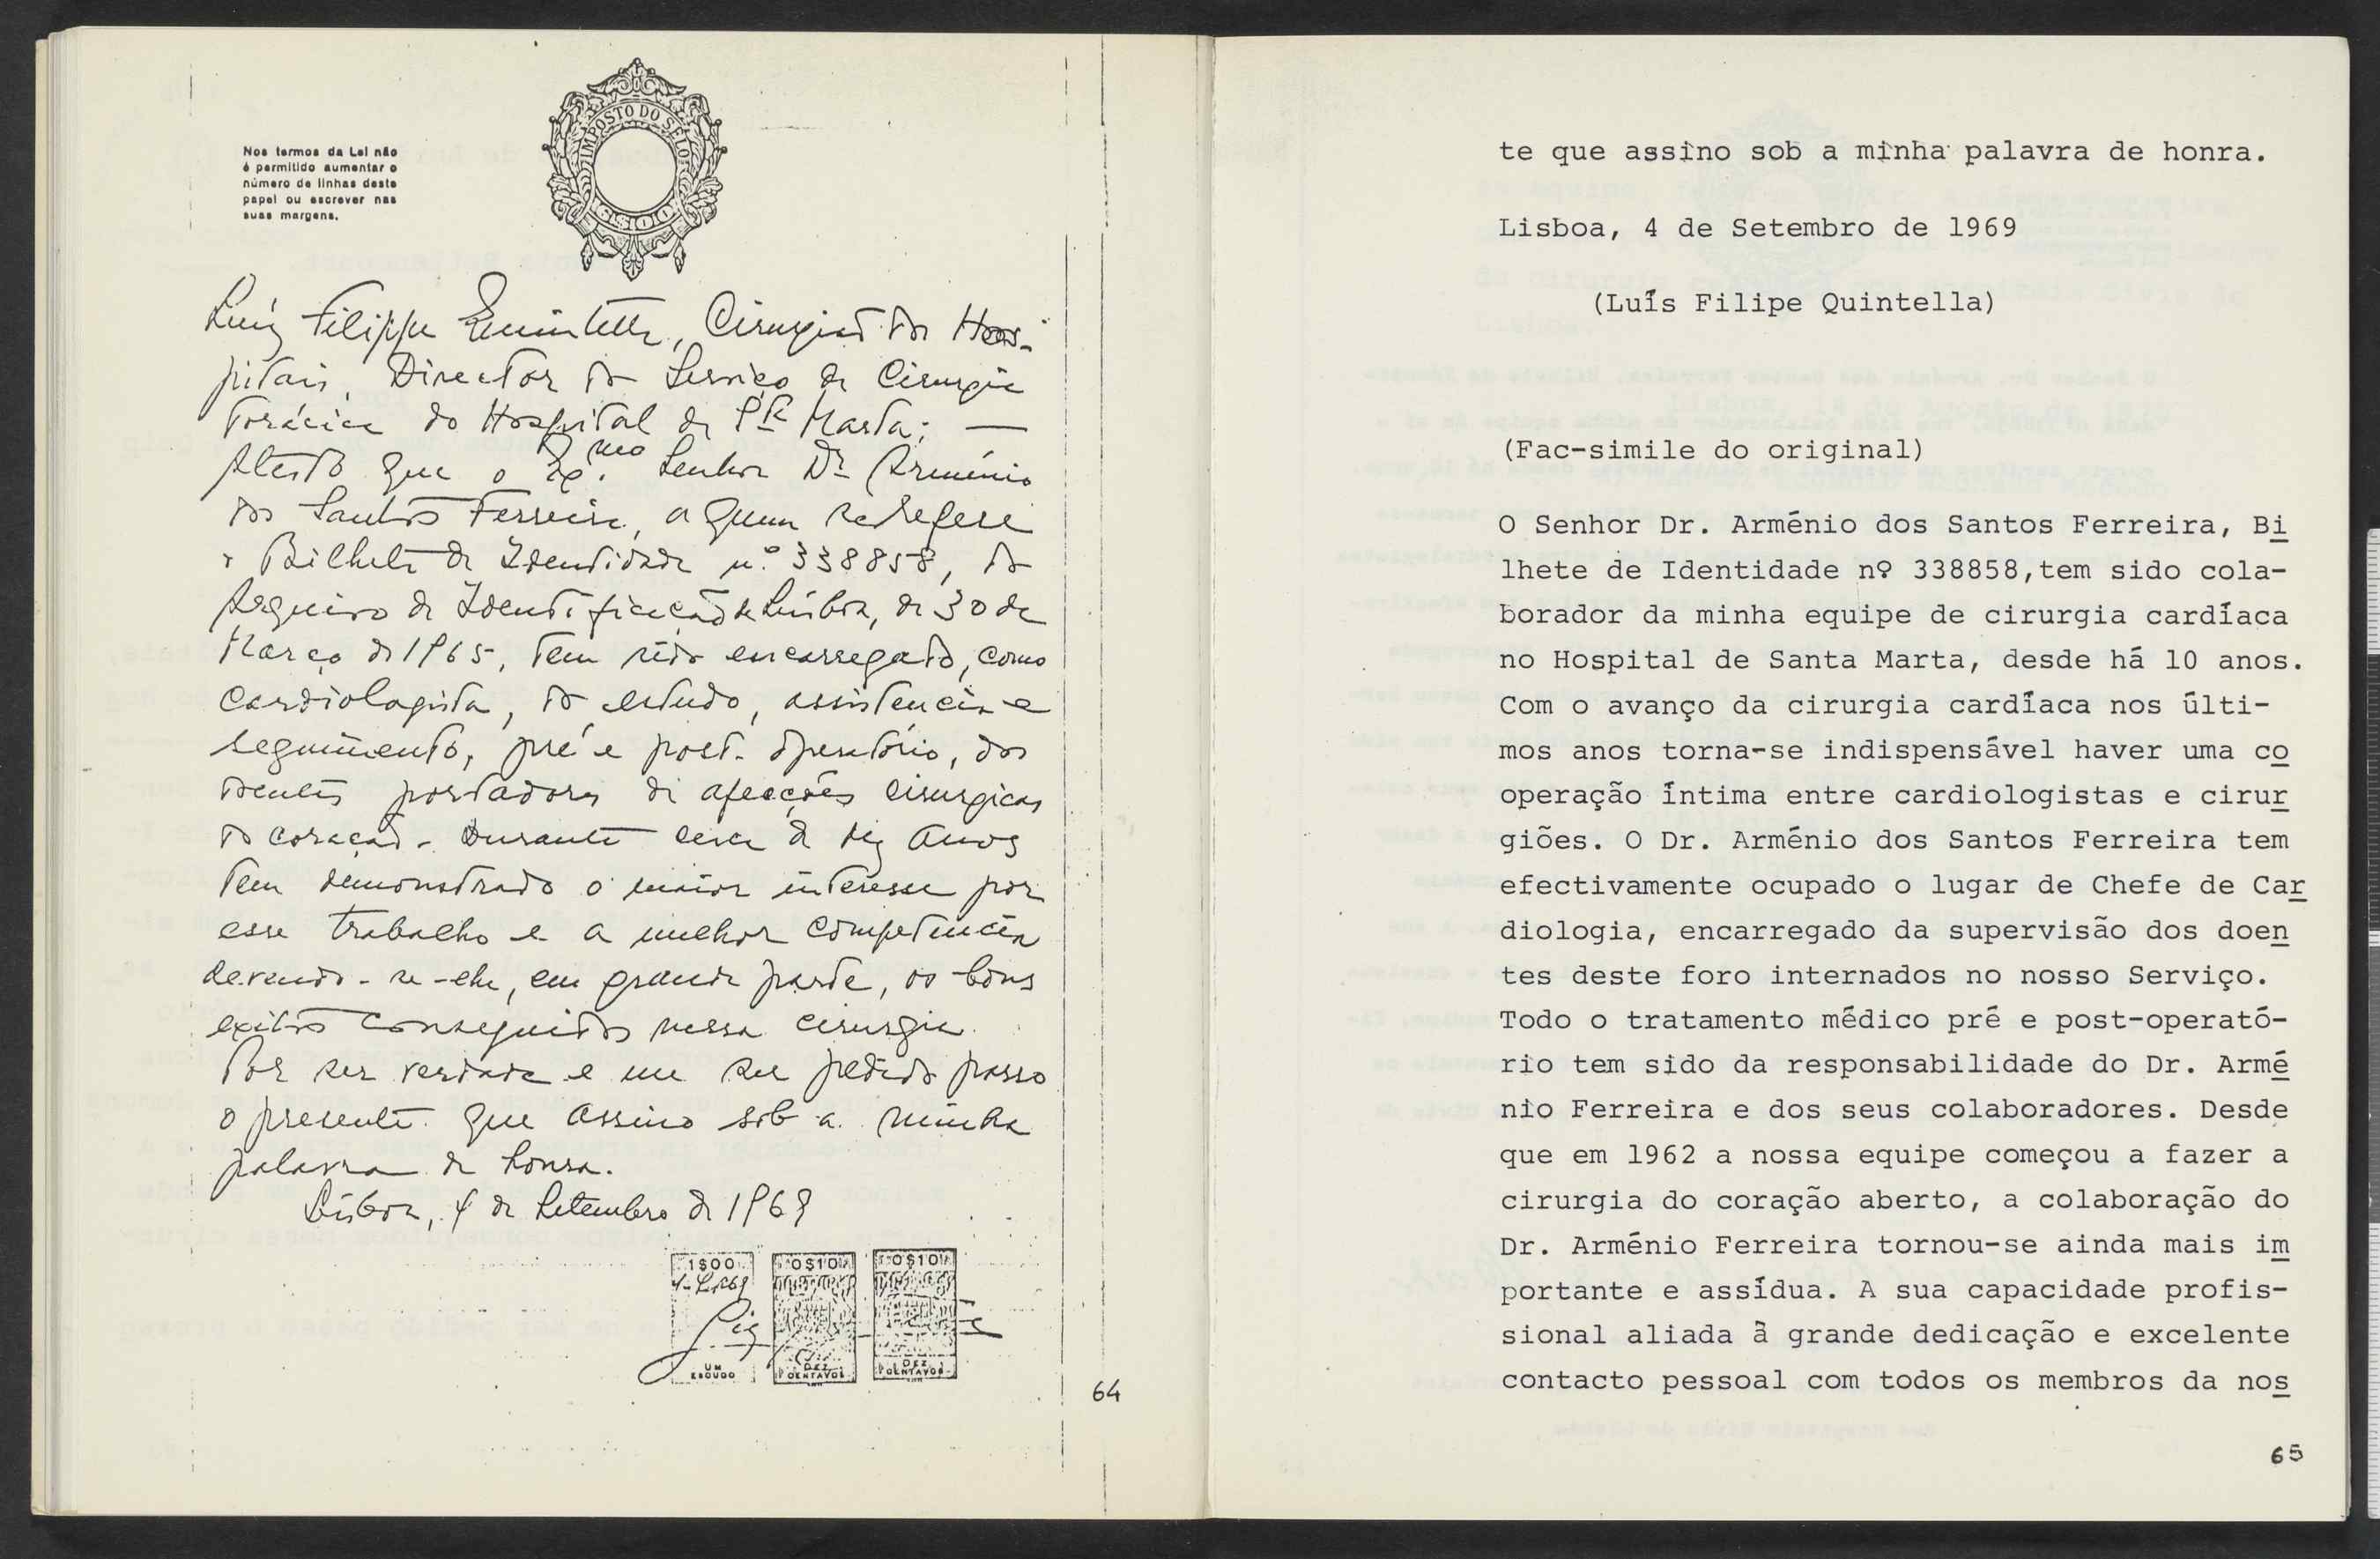 Nos termos da Lei não
é permitido aumentar o
número de linhas deste
papel ou escrever nas
suas margens.
IMPOSTO DO SELO
6$00
Luiz Filippe Quintella, Cirurgião dos Hos-
pitais, Director do Serviço de Cirurgia
Torácica do Hospital de Sta Marta; —
Atesto que o Exmo. Senhor Dr Arménio
dos Santos Ferreira, a quem se refere
o Bilhete de Identidade n.º 338858, do
Arquivo de Identificação de Lisboa, de 30 de
Março de 1965, tem sido encarregado, como
cardiologista, do estudo, assistencia e
seguimento, pré e post-operatório, dos
doentes portadores de afecções cirurgicas
do coração. Durante cerca de dez anos
tem demonstrado o maior interesse por
esse trabalho e a melhor competencia
devendo-se-lhe, em grande parte, os bons
exitos conseguidos nessa cirurgia.
Por ser verdade e me ser pedido passo
o presente que assino sob a minha
palavra de honra.
Lisboa, 4 de Setembro de 1969
1$00 0$10 0$10
UM ESCUDO DEZ CENTAVOS DEZ CENTAVOS
64
te que assino sob a minha palavra de honra.
Lisboa, 4 de Setembro de 1969
(Luís Filipe Quintella)
(Fac-simile do original)
O Senhor Dr. Arménio dos Santos Ferreira, Bi
lhete de Identidade nº 338858,tem sido cola-
borador da minha equipe de cirurgia cardíaca
no Hospital de Santa Marta, desde há 10 anos.
Com o avanço da cirurgia cardíaca nos últi-
mos anos torna-se indispensável haver uma co
operação íntima entre cardiologistas e cirur
giões. O Dr. Arménio dos Santos Ferreira tem
efectivamente ocupado o lugar de Chefe de Car
diologia, encarregado da supervisão dos doen
tes deste foro internados no nosso Serviço.
Todo o tratamento médico pré e post-operató-
rio tem sido da responsabilidade do Dr. Armé
nio Ferreira e dos seus colaboradores. Desde
que em 1962 a nossa equipe começou a fazer a
cirurgia do coração aberto, a colaboração do
Dr. Arménio Ferreira tornou-se ainda mais im
portante e assídua. A sua capacidade profis-
sional aliada à grande dedicação e excelente
contacto pessoal com todos os membros da nos
65